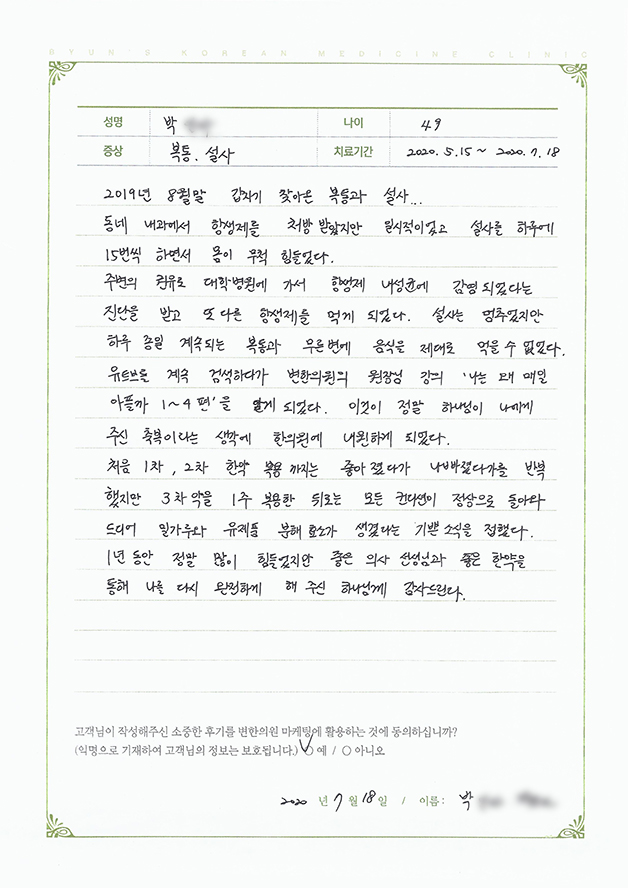 BYUN'S KOREAN MEDICINE CLINIC
성명 박 나이 49
증상 복통. 설사 치료기간 2020. 5.15 ~ 2020. 7. 18
2019년 8월말 갑자기 찾아온 복통과 설사...
동네 내과에서 항생제를 처방 받았지만 일시적이었고 설사를 하루에
15번씩 하면서 몸이 무척 힘들었다.
주변의 권유로 대학병원에 가서 항생제 내성균에 감염되었다는
진단을 받고 또 다른 항생제를 먹게 되었다. 설사는 멈추었지만
하루 종일 계속되는 복통과 무른변에 음식을 제대로 먹을 수 없었다.
유튜브를 계속 검색하다가 변한의원의 원장님 강의 '나는 왜 매일
아플까 1~4편'을 알게 되었다. 이것이 정말 하나님이 나에게
주신 축복이다는 생각에 한의원에 내원하게 되었다.
처음 1차, 2차 한약 복용 까지는 좋아졌다가 나빠졌다가를 반복
했지만 3차 약을 1주 복용한 뒤로는 모든 컨디션이 정상으로 돌아와
드디어 밀가루와 유제품 분해 효소가 생겼다는 기쁜 소식을 접했다.
1년 동안 정말 많이 힘들었지만 좋은 의사 선생님과 좋은 한약을
통해 나를 다시 완전하게 해 주신 하나님께 감사드린다.
고객님이 작성해주신 소중한 후기를 변한의원 마케팅에 활용하는 것에 동의하십니까?
(익명으로 기재하여 고객님의 정보는 보호됩니다.) ○ 예 / ○ 아니오
2020 년 7 월 18 일 / 이름 : 박